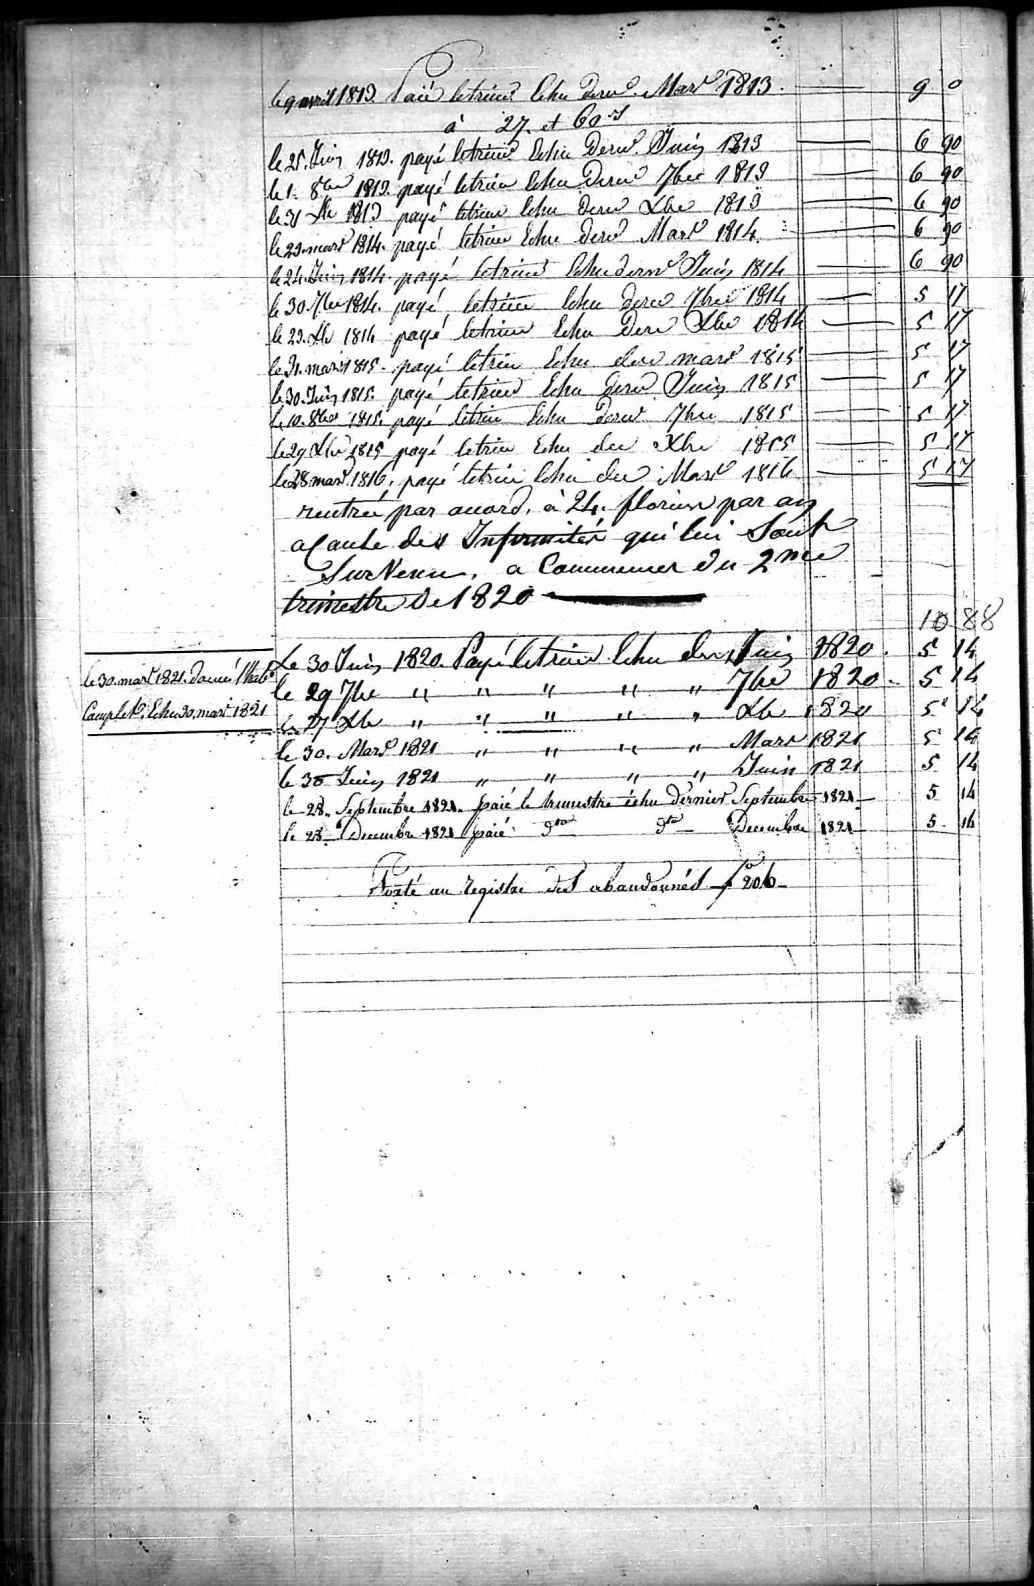 le 9 avril 1813. Paié le trimre Echu dernr. Mars 1813. 9 0
à 27. et 60 s
le 25. Juin 1813. payé le trimre Echu Dernr. Juin 1813 6 90
le 1. 8bre 1813. payé le trimre Echu Dernr 7bre 1813 6 90
le 31 Xbre 1813 payé le trimre Echu dernr Xbre 1813 6 90
le 23. mars 1814. payé le trimre Echu dernr Mars 1814. 6 90
le 24. Juin 1814. payé le trimre Echu dernr Juin 1814 6 90
le 30. 7bre 1814. payé le trimre Echu dernr 7bre 1814 5 17
le 23. Xbre 1814 payé le trimre Echu dernr Xbre 1814 5 17
le 31. mars 1815. payé le trimre Echu dernr mars 1815 5 17
le 30. Juin 1815. payé le trimre Echu dernr Juin 1815 5 17
le 10. 8bre 1815. payé le trimre Echu dernr 7bre 1815 5 17
le 29 Xbre 1815 payé le trimre Echu der Xbre 1815 5 17
le 28 mars 1816. payé le trimre Echu der Mars 1816 5 17
rentré par accord, à 24. florins par an
a Cause des Infirmités qui lui Sont
Survenu, a Commencer du 2me
trimestre de 1820
10 88
Le 30 Juin 1820. Payé le trimre Echu der Juin 1820. 5 14
le 30. mars 1821. Donné l'habt
le 29 7bre " " " " " 7bre 1820 5 14
Complet. Echu 30. mars 1821
le 27 Xbre " " " " " Xbre 1820 5 14
le 30. Mars 1821 " " " " Mars 1821 5 14
le 30 Juin 1821 " " " " Juin 1821 5 14
le 28. Septembre 1821. paié le trimestre échu dernier Septembre 1821 5 14
le 28 Decembre 1821 paié do do Decembre 1821 5 14
Porté au registre des abandonnés fo 206